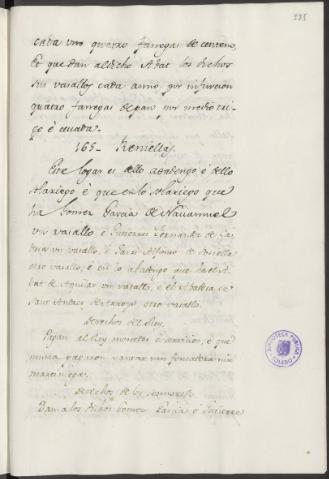 235
cada uno quatro farregas de centeno,
Et que dan al dicho Abat los dichos
sus vasallos cada anno, por infurcion
quatro farregas de pan, por medio tri-
go è cevada.
165-
Este logar es dello abadengo, è dello
solariego, è que en lo solariego que
ha Gomez Garcia de Navamuel
un vasallo, è Gutierrez Fernandez de
un vasallo, è Garci Alfonso de
otro vasallo, è en lo abadengo que ha el A-
bat de Aguilar un vasallo, è el Abadesa de
Sant Andres de Arroyo otro vasallo.
Derechos del Rey.
Pagan al Rey monedas è servicios, è que
nunca pagaron yantar nin fonsadera nin
martiniega.
Derechos de los sennores.
Dan a los dichos Gomez Garcia, è Gutierre
BIBLIOTECA PUBLICA
TOLEDO